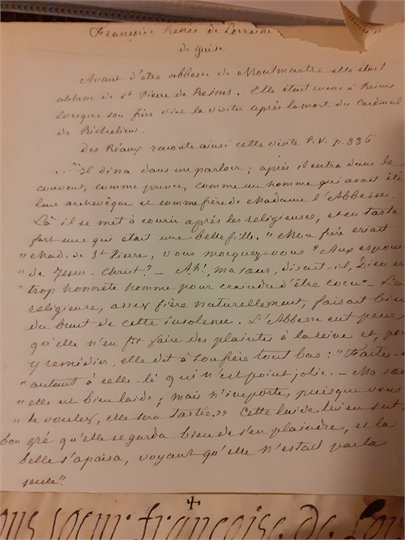 Françoise Renée de Lorraine
de Guise.
Avant d'être abbesse de Montmartre elle était
abbesse de St Pierre de Reims. Elle était encore à Reims
lorsque son frère vint la visiter après la mort du Cardinal
de Richelieu.
Des Réaux raconte ainsi cette visite T. V. p. 336
... "Il dîna dans un parloir; après il entra dans le
couvent, comme prince, comme un homme qui avait été
leur archevêque et comme frère de Madame l'Abbesse.
Là il se mit à courir après les religieuses, et en tasta
fort une qui était une belle fille. "Mon frère criait
"Mad. de St Pierre, vous moquez-vous? Aux espouses
"de Jesus-Christ? – Ah! ma sœur, disait-il, Dieu est
"trop honnête homme pour craindre d'être cocu". La
religieuse, assez fière naturellement, faisait bien
du bruit de cette insolence. L'Abbesse eut peur
qu'elle n'en fît faire des plaintes à la reine et, pour
y remédier, elle dit à son frère tout bas: "Faites-en
"autant à celle-là qui n'est point jolie. – Ma sœur
"elle est bien laide; mais n'importe, puisque vous
"le voulez, elle sera tastée." Cette laide lui en sut
bon gré qu'elle se garda bien de s'en plaindre, et la
belle s'apaisa, voyant qu'elle n'estait pas la
seule".
sœur françoise de Lor